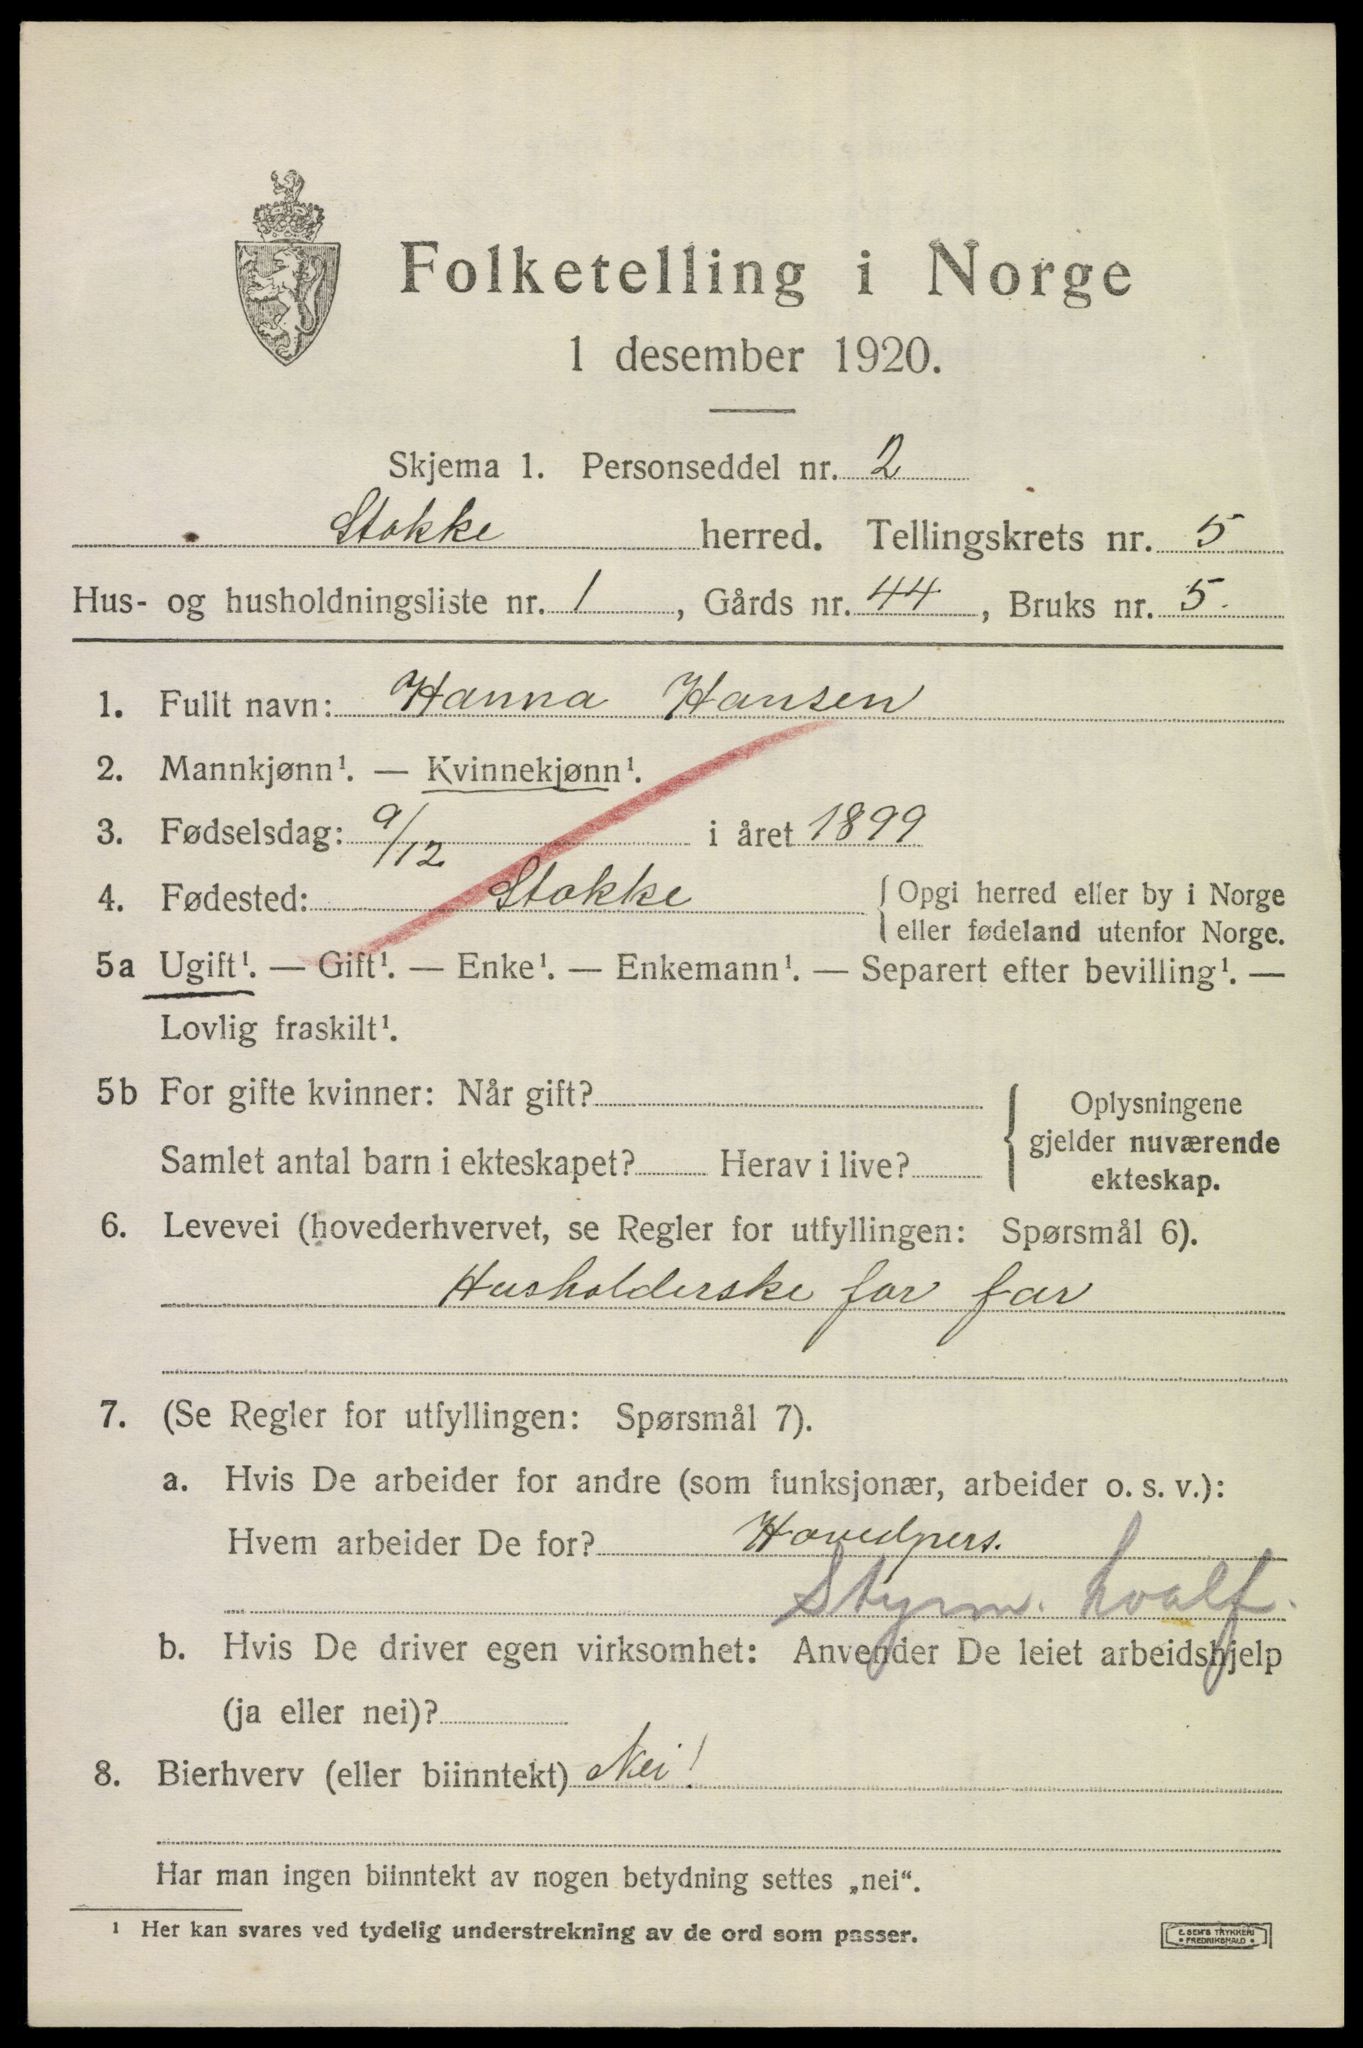 Folketelling i Norge
1 desember 1920.
Skjema 1. Personseddel nr. 2
Stokke herred. Tellingskrets nr. 5
Hus- og husholdningsliste nr. 1, Gårds nr. 44, Bruks nr. 5.
1. Fullt navn: Hanna Hansen
2. Mannkjønn¹. — Kvinnekjønn¹.
3. Fødselsdag: 9/12 i året 1899
4. Fødested: Stokke { Opgi herred eller by i Norge
eller fødeland utenfor Norge.
5a Ugift¹. — Gift¹. — Enke¹. — Enkemann¹. — Separert efter bevilling¹. —
Lovlig fraskilt¹.
5b For gifte kvinner: Når gift?
Samlet antal barn i ekteskapet? Herav i live?
{ Oplysningene
gjelder nuværende
ekteskap.
6. Levevei (hovederhvervet, se Regler for utfyllingen: Spørsmål 6).
Husholderske for far
7. (Se Regler for utfyllingen: Spørsmål 7).
a. Hvis De arbeider for andre (som funksjonær, arbeider o. s. v.):
Hvem arbeider De for? Hovedpers.
Styrm. hvalf.
b. Hvis De driver egen virksomhet: Anvender De leiet arbeidshjelp
(ja eller nei)?
8. Bierhverv (eller biinntekt) Nei!
Har man ingen biinntekt av nogen betydning settes „nei“.
¹ Her kan svares ved tydelig understrekning av de ord som passer.
E. SEM'S TRYKKERI
• FREDRIKSHALD •